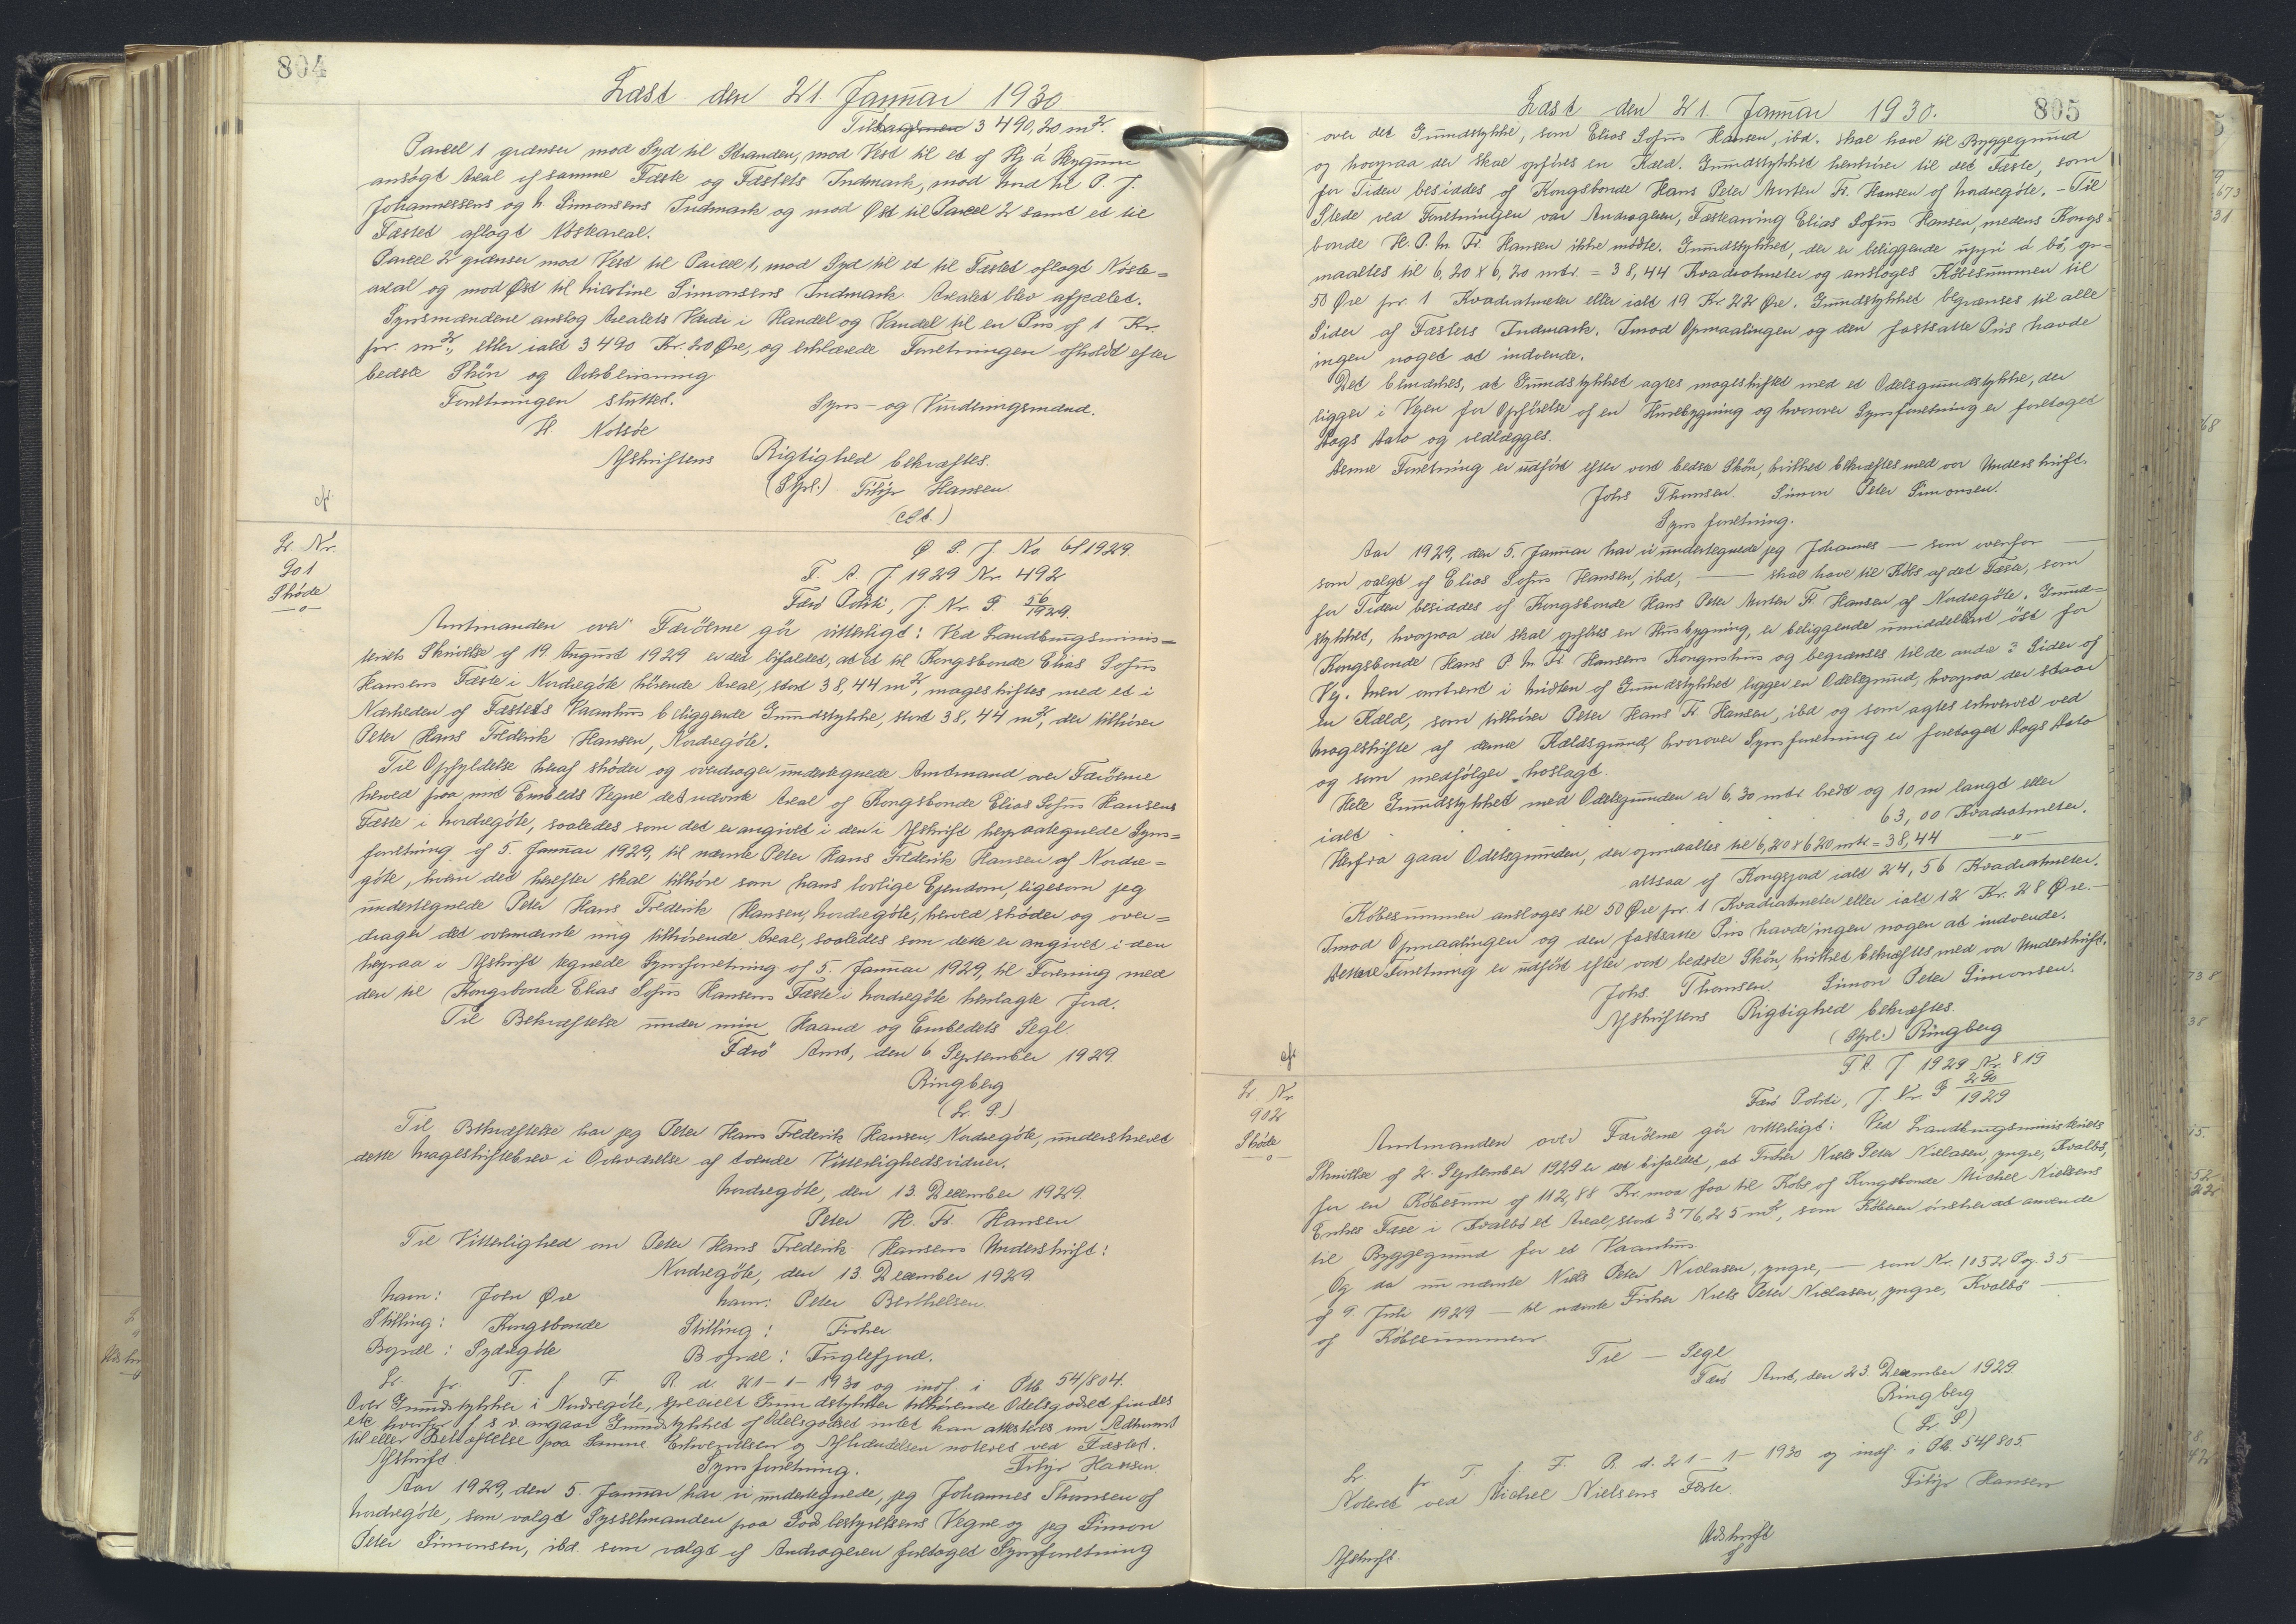 804
Læst den 21. Januar 1930
3490,20 m².
Parcel 1 grænser mod Syd til Stranden, mod Vest til et af Hj. á Heygum
ansøgt Areal af samme Fæste og Fæstets Indmark, mod Nord til P. J.
Johannessens og N. Simonsens Indmark og mod Øst til Parcel 2 samt et til
Fæstet aflagt Nøsteareal.
Parcel 2 grænser mod Vest til Parcel 1, mod Syd til et til Fæstet aflagt Nøste=
areal og mod Øst til Nicoline Simonsens Indmark. Arealet blev afpælet.
Synsmændene anslog Arealets Værdi i Handel og Vandel til en Pris af 1 Kr.
pr. m², eller ialt 3490 Kr. 20 Øre, og erklærede Forretningen afholdt efter
bedste Skøn og Overbevisning
Forretningen sluttet.
Syns- og Vurderingsmænd.
H. Nolsøe
Afskriftens Rigtighed bekræftes.
(Stpl.) Filip Hansen.
(cst.)
cf.
Lr. Nr.
901
Skøde
—o—
Ø L. J. No. 61/1929.
F. A. J. 1929 Nr. 492
Færø Politi, J. Nr. P 56/1929.
Amtmanden over Færøerne gör vitterligt: Ved Landbrugsminis=
teriets Skrivelse af 19 August 1929 er det bifaldet, at et til Kongsbonde Elias Sofus
Hansens Fæste i Nordregöte hörende Areal, stort 38,44 m², mageskiftes med et i
Nærheden af Fæstets Vaanhus beliggende Grundstykke, stort 38,44 m², der tilhører
Peter Hans Frederik Hansen, Nordregöte.
Til Opfyldelse heraf skøder og overdrager undertegnede Amtmand over Færöerne
herved paa mit Embeds Vegne det udviste Areal af Kongsbonde Elias Sofus Hansens
Fæste i Nordregöte, saaledes som det er angivet i den i Afskrift herpaategnede Syns=
forretning af 5. Januar 1929, til nævnte Peter Hans Frederik Hansen af Nordre=
göte, hvem det herefter skal tilhöre som hans lovlige Ejendom, ligesom jeg
undertegnede Peter Hans Frederik Hansen, Nordregöte, herved skøder og over=
drager det ovennævnte mig tilhørende Areal, saaledes som dette er angivet i den
herpaa i Afskrift tegnede Synsforretning af 5. Januar 1929, til Forening med
den til Kongsbonde Elias Sofus Hansens Fæste i Nordregöte henlagte Jord.
Til Bekræftelse under min Haand og Embedets Segl.
Færø Amt, den 6 September 1929.
Ringberg
(L. S.)
Til Bekræftelse har jeg Peter Hans Frederik Hansen, Nordregöte, underskrevet
dette Mageskiftebrev i Overværelse af tvende Vitterlighedsvidner.
Nordregöte, den 13. December 1929.
Peter H. Fr. Hansen
Til Vitterlighed om Peter Hans Frederik Hansens Underskrift:
Nordregöte, den 13. December 1929
Navn: John Øre
Navn: Peter Berthelsen.
Stilling: Kongsbonde
Stilling: Fisker.
Bopæl: Sydregöte
Bopæl: Fuglefjord.
Lr. pr. T. f. F. R. d. 21-1-1930 og indf. i Ptb. 54/804.
Over Grundstykker i Nordregöte, specielt Grundstykker tilhørende Odelsgodset findes
etc hvorfor f s v angaar Grundstykket af Odelsgodset intet kan attesteres om Adkomst
til eller Behæftelse paa Samme. Erhvervelsen og Afhændelsen noteret ved Fæstet.
Afskrift.
Filip Hansen.
Synsforretning.
Aar 1929, den 5. Januar har vi undertegnede, jeg Johannes Thomsen af
Nordregöte, som valgt Sysselmanden paa Godsbestyrelsens Vegne og jeg Simon
Peter Simonsen, ibd. som valgt af Andrageren foretaget Synsforretning
Læst den 21. Januar 1930.
805
over det Grundstykke, som Elias Sofus Hansen, ibd. skal have til Byggegrund
og hvorpaa der skal opföres en Kæld. Grundstykket henhører til det Fæste, som
for Tiden besiddes af Kongsbonde Hans Peter Morten Fr. Hansen af Nordregöte. - Til
Stede ved Forretningen var Andrageren, Fæstearving Elias Sofus Hansen, medens Kongs=
bonde H. P. M. Fr. Hansen ikke mödte. Grundstykket, der er beliggende uppi á bö, op=
maaltes til 6,20 x 6,20 mtr. = 38,44 Kvadratmeter og ansloges Købesummen til
50 Øre pr. 1 Kvadratmeter eller ialt 19 Kr. 22 Øre. Grundstykket begrænses til alle
Sider af Fæstets Indmark. Imod Opmaalingen og den fastsatte Pris havde
ingen noget at indvende.
Det bemærkes, at Grundstykket agtes mageskiftet med et Odelsgrundstykke, der
ligger i Vejen for Opførelse af en Husebygning og hvorover Synsforretning er foretaget
Dags Dato og vedlægges.
Denne Forretning er udført efter vort bedste Skön, hvilket bekræftes med vor Underskrift.
Johs Thomsen. Simon Peter Simonsen.
Synsforretning.
Aar 1929, den 5. Januar har vi undertegnede jeg Johannes — som ovenfor —
som valgt af Elias Sofus Hansen, ibd, — skal have til Købs af det Fæste, som
for Tiden besiddes af Kongsbonde Hans Peter Morten Fr. Hansen af Nordregöte. Grund=
stykket, hvorpaa der skal opføres en Husbygning, er beliggende umiddelbart öst for
Kongsbonde Hans P. M. Fr. Hansens Kongmshus og begrænses til de andre 3 Sider af
Vej. Men omtrent i Midten af Grundstykket ligger en Odelsgrund, hvorpaa der staar
en Kæld, som tilhører Peter Hans Fr. Hansen, ibd og som agtes erhvervet ved
Mageskifte af denne Kældsgrund, hvorover Synsforretning er foretaget Dags Dato
og som medfölger hoslagt.
Hele Grundstykket med Odelsgrunden er 6,30 mtr bredt og 10 m langt eller
ialt . . . . . 63,00 Kvadratmeter.
Herfra gaar Odelsgrunden, der opmaaltes til 6,20 x 6,20 mtr = 38,44 — " —
altsaa af Kongsjord ialt 24,56 Kvadratmeter.
Købesummen ansloges til 50 Øre pr. 1 Kvadratmeter eller ialt 12 Kr. 28 Øre.—
Imod Opmaalingen og den fastsatte Pris havde ingen nogen at indvende.
Forretning er udført efter vort bedste Skön, hvilket bekræftes med vor Underskrift.
Johs. Thomsen. Simon Peter Simonsen.
Afskriftens Rigtighed bekræftes.
(Stpl.) Ringberg
cf.
Lr. Nr
902
Skøde
—o—
F. A. J 1929 Nr. 819
Færø Politi, J. Nr. P 290/1929
Amtmanden over Færöerne gör vitterligt: Ved Landbrugsministeriets
Skrivelse af 2. September 1929 er det bifaldet, at Fisker Niels Peter Niclasen, yngre, Kvalbö,
for en Købesum af 112,88 Kr. maa faa til Købs af Kongsbonde Michel Nielsens
Enkes Fæse i Kvalbö et Areal, stort 376,25 m², som Køberen ønsker at anvende
til Byggegrund for et Vaanhus.
Og da nu nævnte Niels Peter Niclasen, yngre, — som Nr. 1032 Pag. 35
af 9. Juli 1929 — til nævnte Fisker Niels Peter Niclasen, yngre, Kvalbö —
af Købesummen.
Til — Segl
Færø Amt, den 23. December 1929.
Ringberg
(L. S)
Lr. pr T. f. F. R. d. 21-1-1930 og indf. i Ptb. 54/805.
Noteret ved Michel Nielsens Fæste.
Filip Hansen
Afskrift.
Udskrift
af